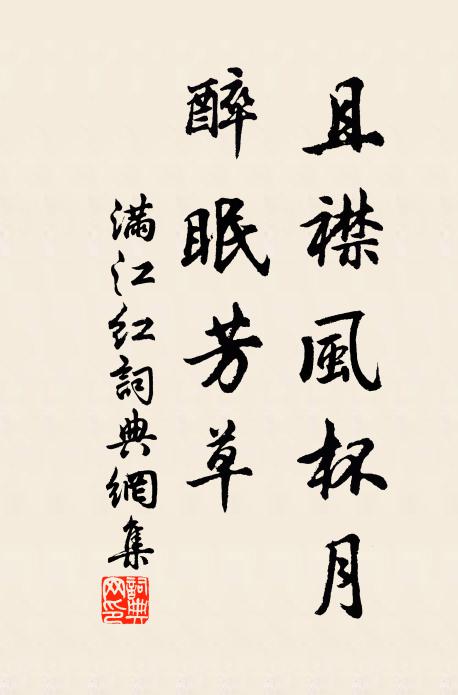 且襟風杯月
醉眠芳草
滿江紅詞典網集
詞典网印